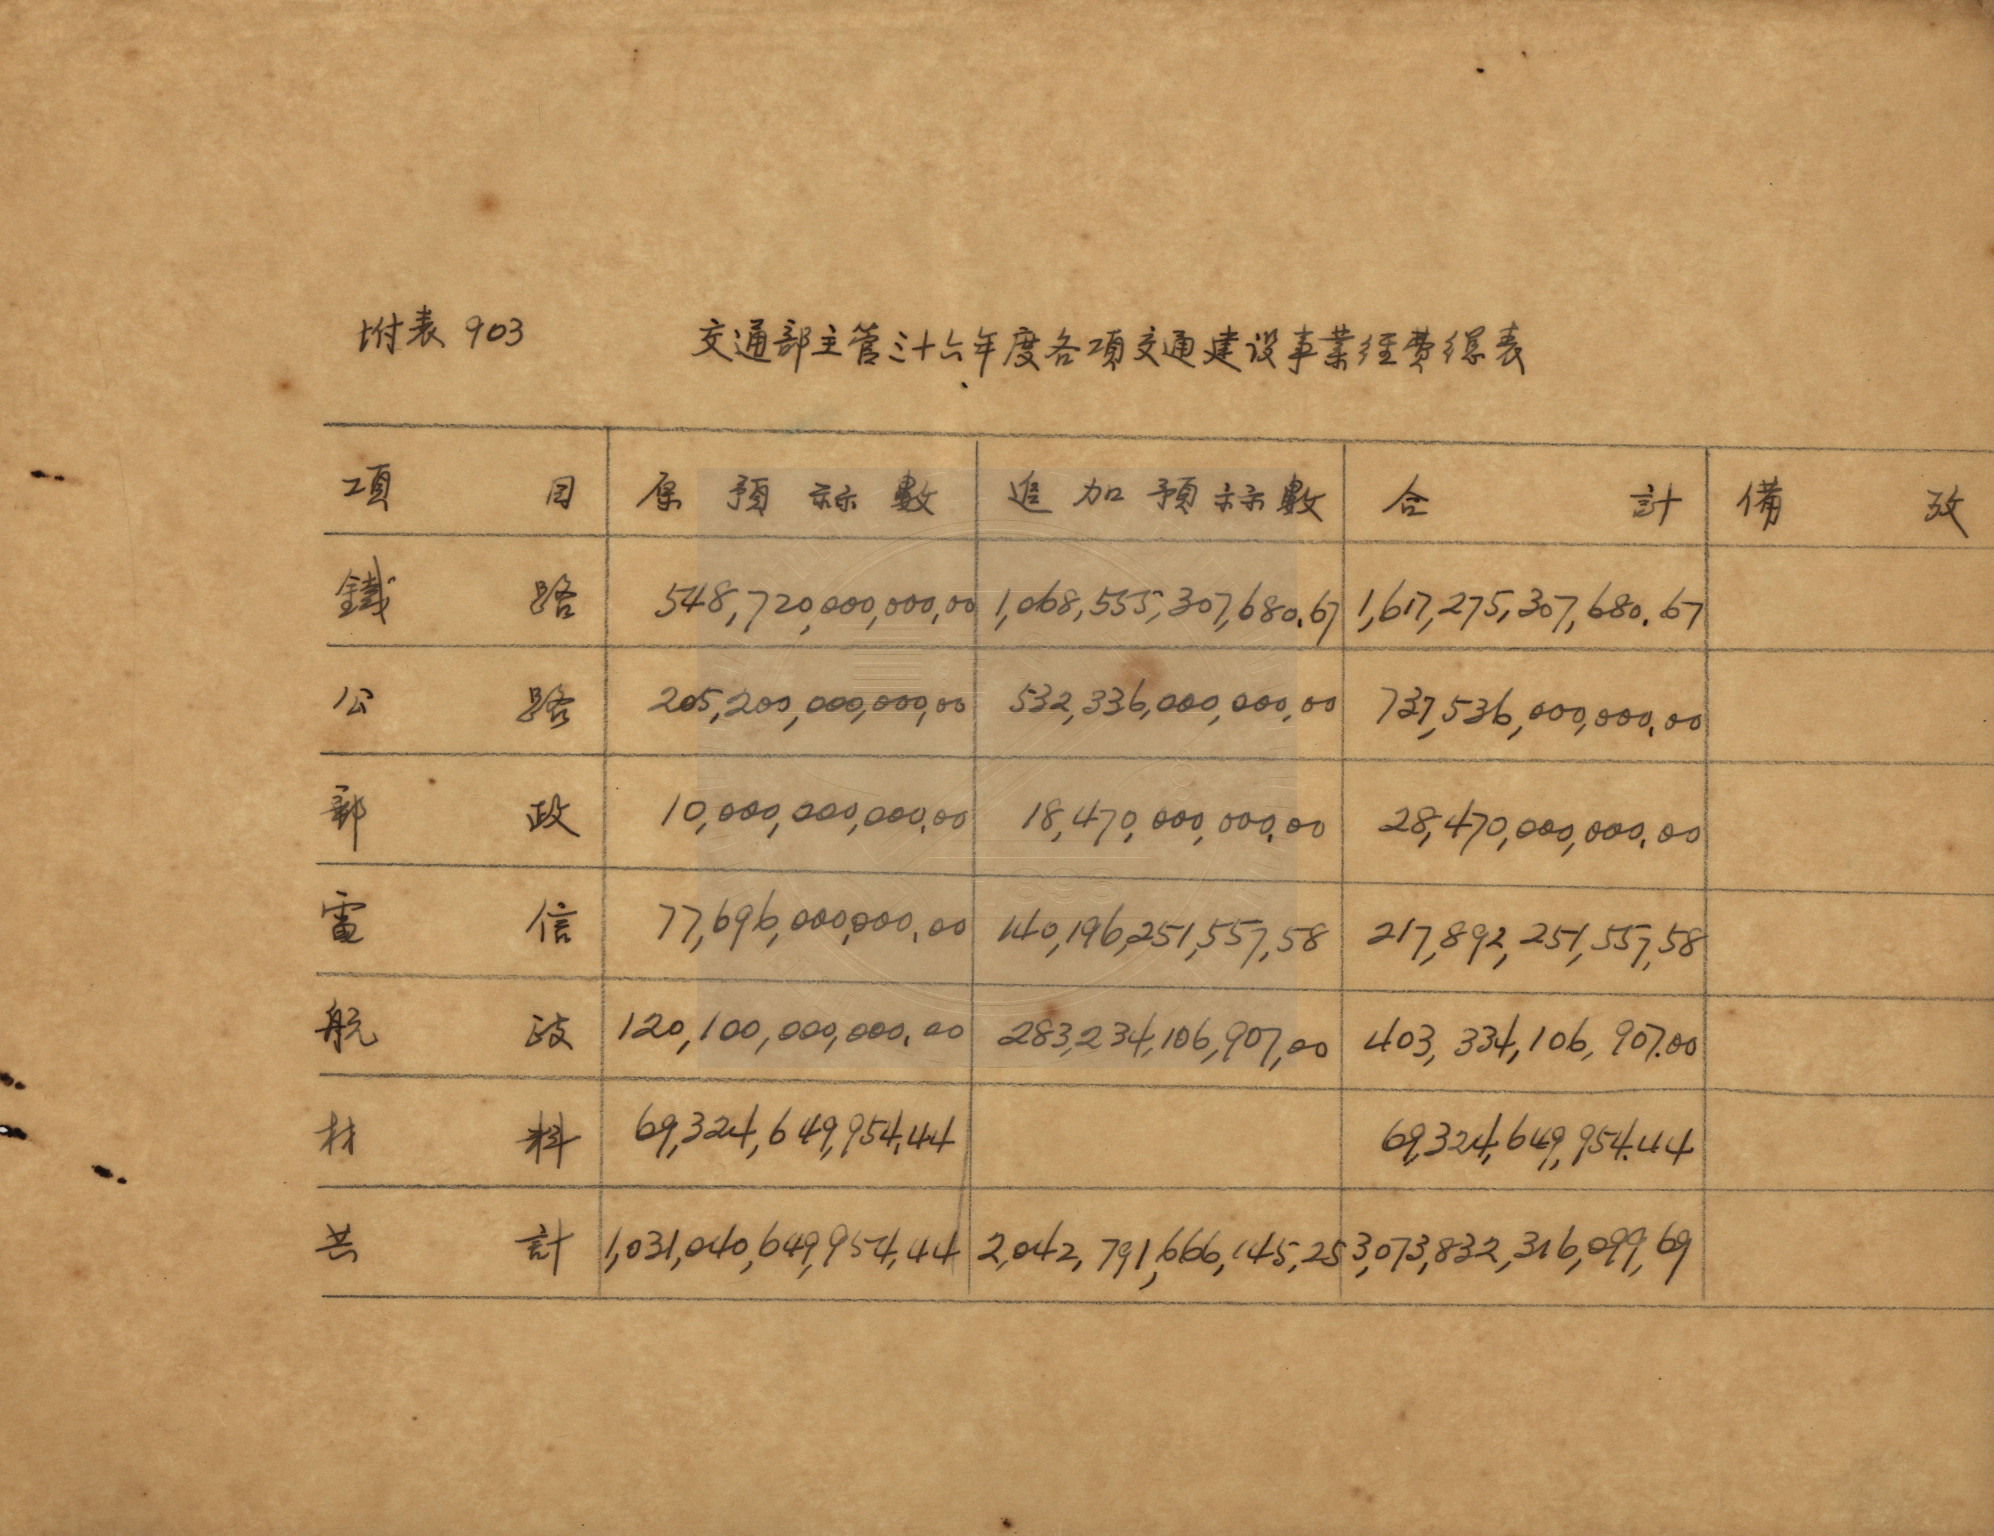 附表 903
交通部主管三十六年度各項交通建设事業経費總表
項目 原預祘數 追加預祘數 合計 備攷
鐵路 548,720,000,000.00 1,068,555,307,680.67 1,617,275,307,680.67
公路 205,200,000,000.00 532,336,000,000.00 737,536,000,000.00
郵政 10,000,000,000.00 18,470,000,000.00 28,470,000,000.00
電信 77,696,000,000.00 140,196,251,557,58 217,892,251,557,58
航政 120,100,000,000.00 283,234,106,907,00 403,334,106,907.00
材料 69,324,649,954.44 69,324,649,954.44
共計 1,031,040,649,954,44 2,042,791,666,145,25 3,073,832,316,099,69